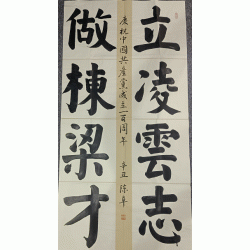 立凌雲志
慶祝中國共產黨成立一百周年 辛丑 陳
做棟梁才